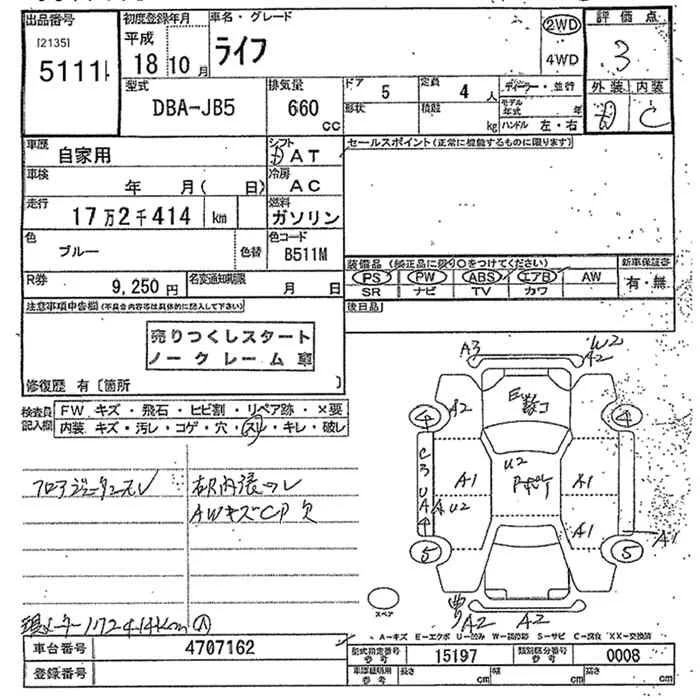 出品番号
[2135]
5111
初度登録年月
平成
18年10月
車名・グレード
ライフ
2WD
4WD
評価点
3
外装 内装
D C
型式
DBA-JB5
排気量
660
cc
ドア
5
定員
4人
形状
積載
kg
ディーラー・並行
モデル年式 年
ハンドル 左・右
車歴
自家用
シフト
AT
車検
年 月( 日)
冷房
AC
走行
17万2千414 km
燃料
ガソリン
色
ブルー
色替
色コード
B511M
R券
9,250円
名変通知期限
月 日
セールスポイント(正常に機能するものに限ります)
装備品(純正品に限り○をつけてください)
PS PW ABS エアB AW
SR ナビ TV カワ
新車保証書
有・無
後日品
注意事項申告欄(不具合内容等は具体的に記入して下さい)
売りつくしスタート
ノークレーム車
修復歴 有〔箇所 〕
検査員記入欄
FW キズ・飛石・ヒビ割・リペア跡・×要
内装 キズ・汚レ・コゲ・穴・スレ・キレ・破レ
AWキズCP欠
A3
W2
A2
A2
E
U2
A1
A1
C3UA4
A U2
A1
A1
4
4
5
5
A2
A2
スペア
現メーター172414km
A
A-キズ E-エクボ U-凹み W-補修跡 S-サビ C-腐食 XX-交換済
車台番号
4707162
登録番号
型式指定番号
参考
15197
類別区分番号
参考
0008
車庫証明用
参考
長さ cm
幅 cm
高さ cm